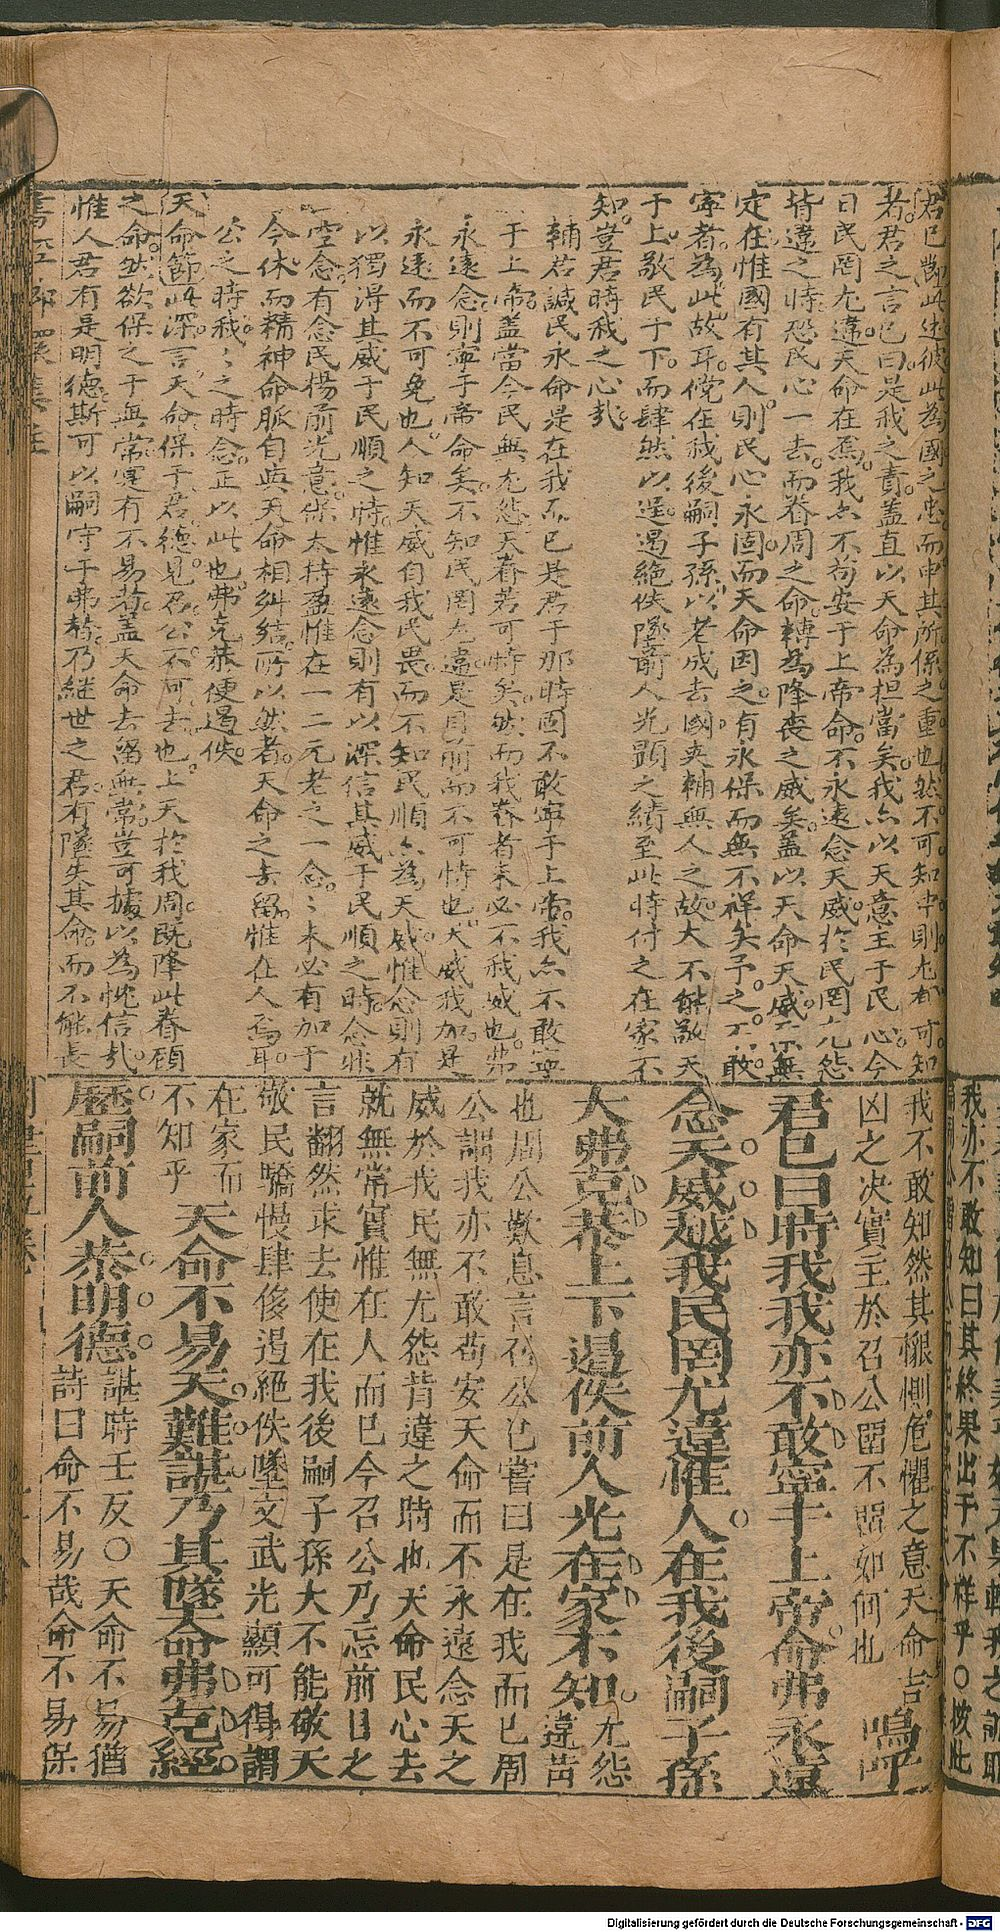 君已鄙此述彼此為國之忠而申其所係之重也然不可知中則尤有可知
者君之言已曰是我之責蓋直以天命為担當矣我亦以天意主于民心今
日民罔尤違天命在焉我亦不苟安于上帝命不永遠念天威於民罔尤怨
背違之時恐民心一去而眷周之命轉為降喪之威矣蓋以天命天威不無
定在惟國有其人則民心永固而天命因之有永保而無不祥矣予之不敢
寧者為此故耳儻在我後嗣子孫以老成去國夾輔無人之故大不能敬天
于上敬民于下而肆然以逞遏絕佚墜前人光顯之績至此時付之在家不
知豈君時我之心哉
輔君諴民永命是在我而已是君于那時固不敢寧于上帝我亦不敢寧
于上帝蓋當今民無尤怨天眷若可恃矣然而我眷者未必不我威也弗
永遠念則寧于帝命矣不知民罔尤違是目前而不可恃也天威我加是
永遠而不可免也人知天威自我民畏而不知民順亦為天威惟念則有
以獨得其威于民順之時惟永遠念則有以深信其威于民順之時念非
空念有念民揚前光意保大持盈惟在一二元老之一念念未必有加于
今休而精神命脈自與天命相糾結所以然者天命之去留惟在人焉耳
公之時我我之時念正以此也弗克恭便遏佚
天命節此深言天命保于君德見召公不可去也上天於我周既降此眷顧
之命然欲保之于無常寔有不易者蓋天命去留無常豈可據以為忱信哉
惟人君有是明德斯可以嗣守于弗替乃繼世之君有墜失其命而不能長
我不敢知然其懍惻危懼之意天命吉
凶之决實主於召公留不留如何也 嗚呼
君已曰時我我亦不敢寧于上帝命弗永遠
念天威越我民罔尤違惟人在我後嗣子孫
大弗克恭上下遏佚前人光在家不知 尤怨違背
也周公歎息言召公已嘗曰是在我而已周
公謂我亦不敢苟安天命而不永遠念天之
威於我民無尤怨背違之時也天命民心去
就無常實惟在人而已今召公乃忘前日之
言翻然求去使在我後嗣子孫大不能敬天
敬民驕慢肆侈遏絕佚墜文武光顯可得謂
在家而不知乎 天命不易天難諶乃其墜命弗克經
歷嗣前人恭明德 諶時壬反○天命不易猶
詩曰命不易哉命不易保
我亦不敢知曰其終果出于不祥乎○按此
Digitalisierung gefördert durch die Deutsche Forschungsgemeinschaft - DFG